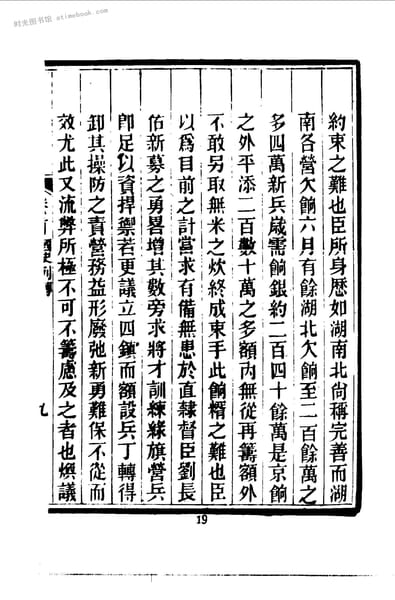 时光图书馆 etimebook.com
約束之難也臣所身歷如湖南北尙稱完善而湖
南各營欠餉六月有餘湖北欠餉至二百餘萬之
多四萬新兵歲需餉銀約二百四十餘萬是京餉
之外平添二百數十萬之多額内無從再籌額外
不敢另取無米之炊終成束手此餉糈之難也臣
以爲目前之計當求有備無患於直隸督臣劉長
佑新募之勇畧增其數旁求將才訓練綠旗營兵
卽足以資捍禦若更議立四鎭而額設兵丁轉得
卸其操防之責營務益形廢弛新勇難保不從而
效尤此又流弊所極不可不籌慮及之者也熼議
九
19